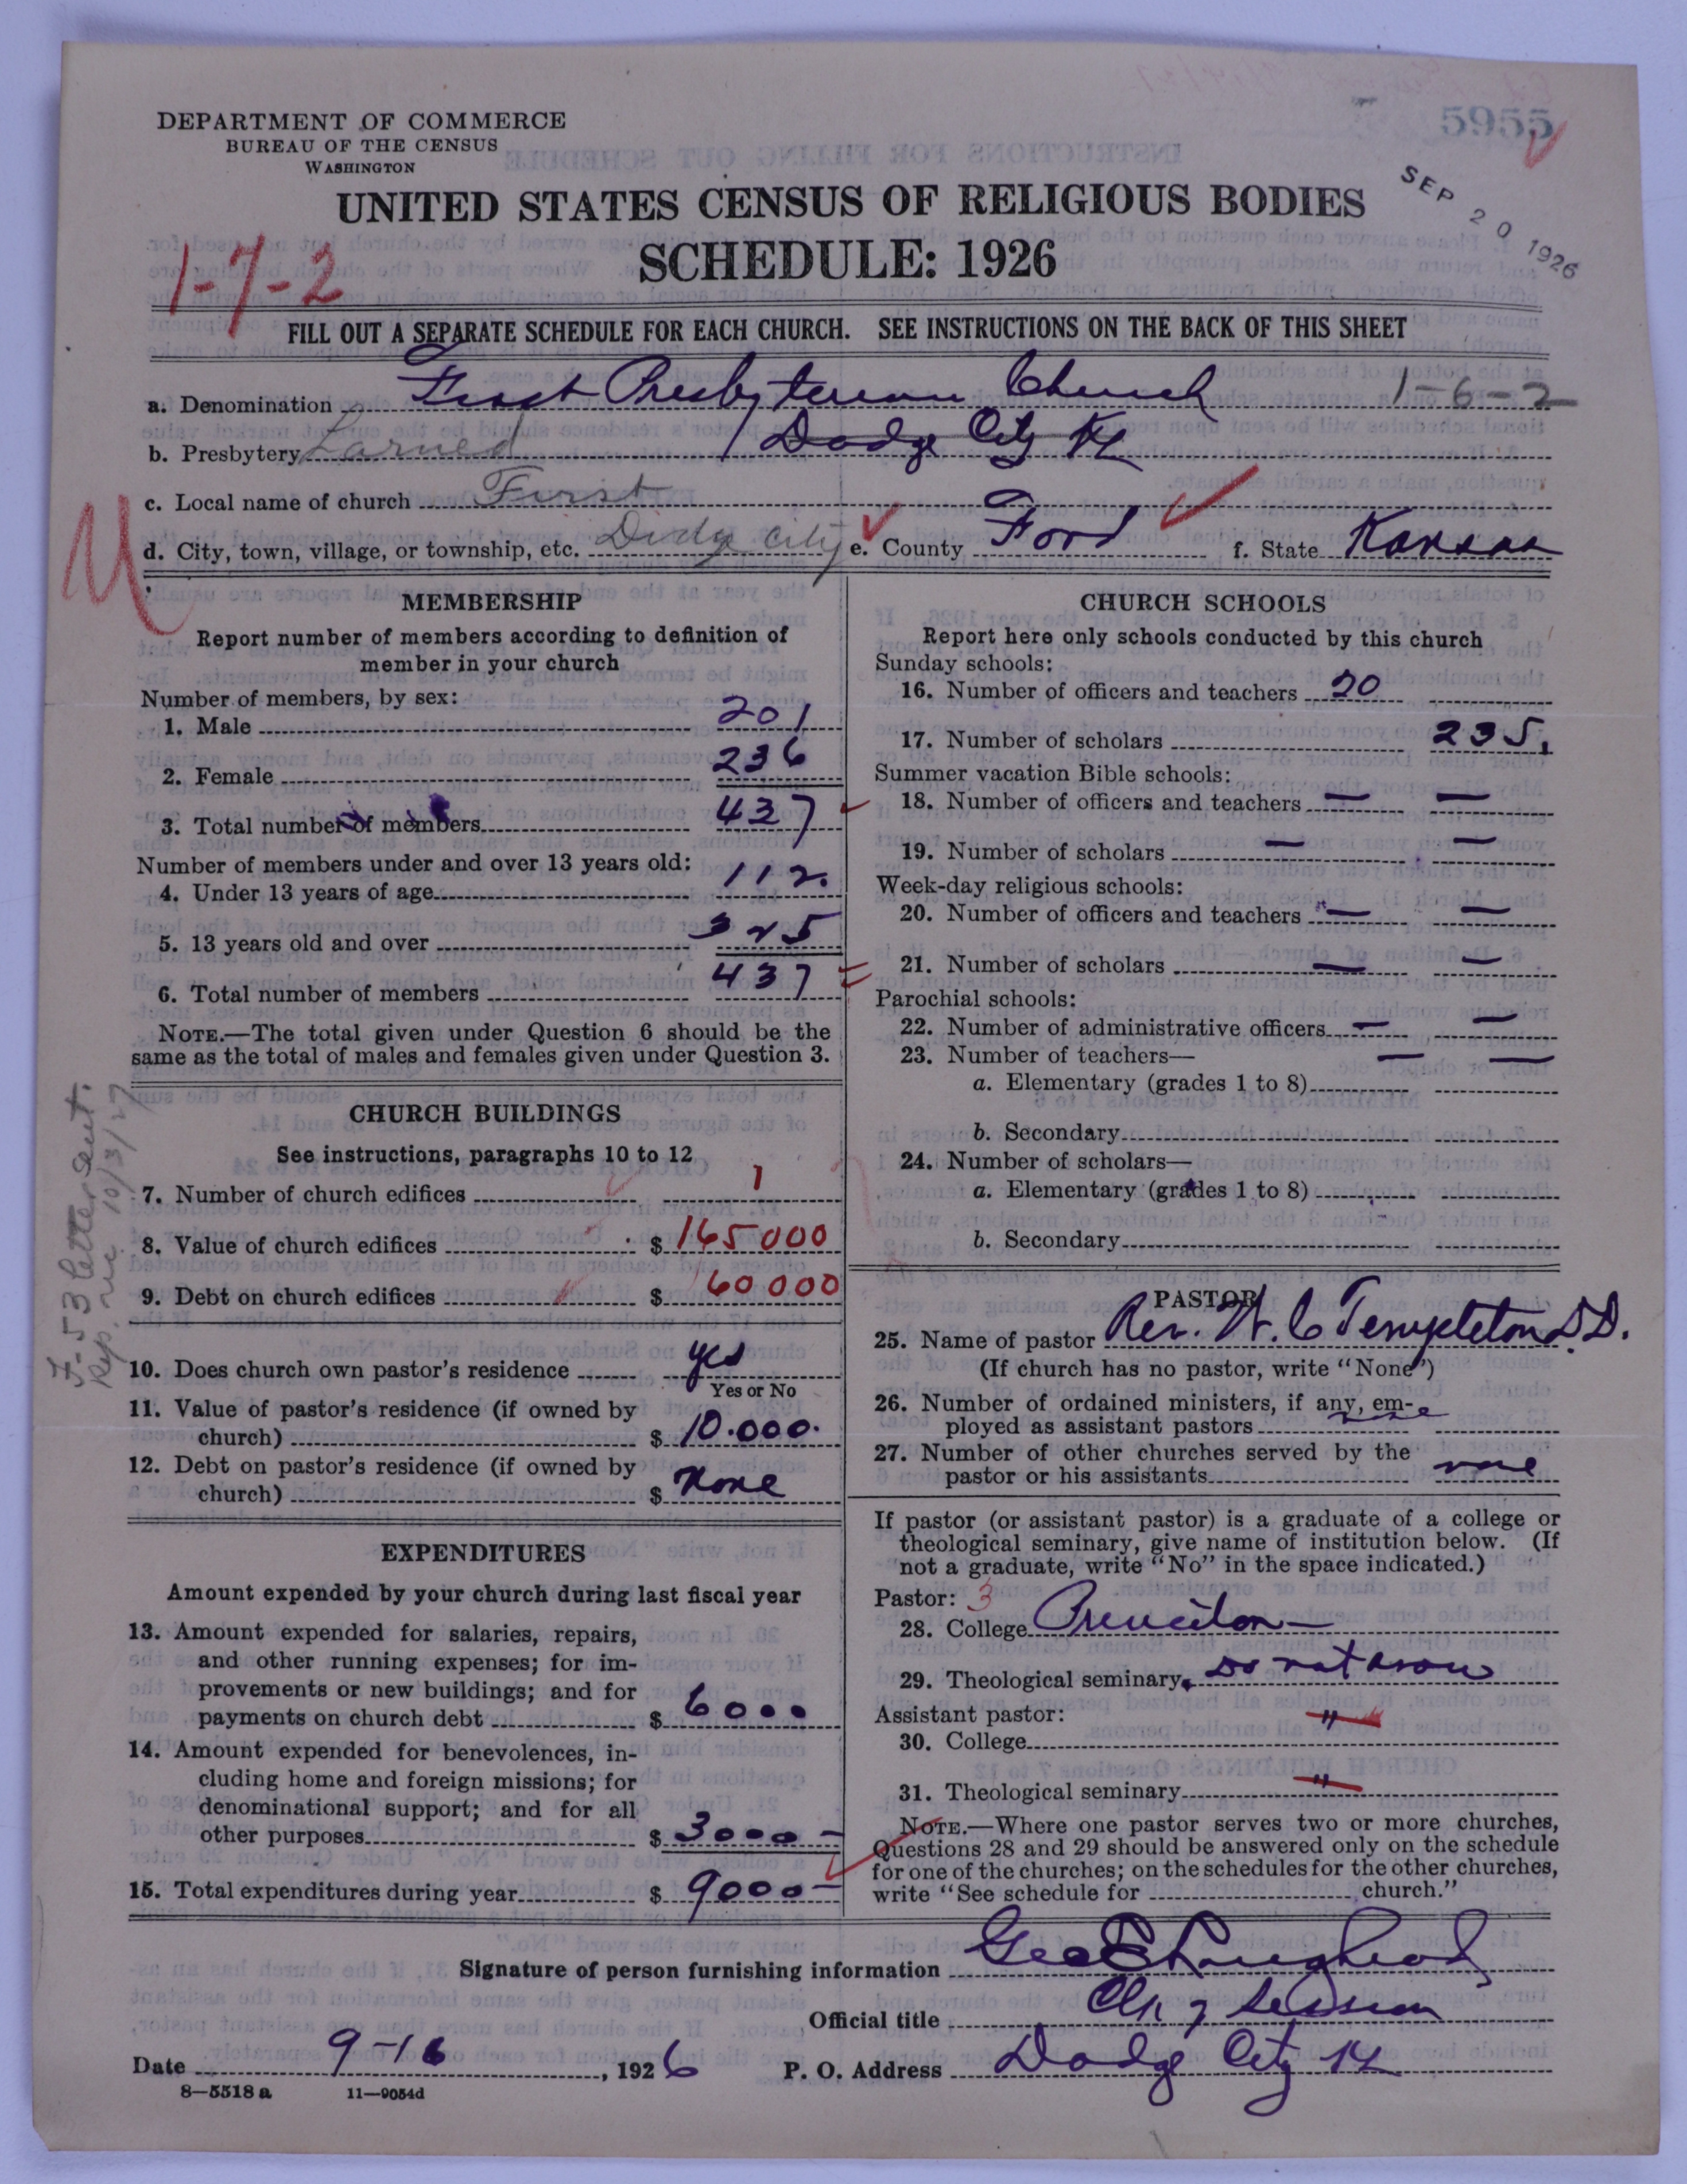 5955
SEP 20 1926
DEPARTMENT OF COMMERCE
BUREAU OF THE CENSUS
WASHINGTON
UNITED STATES CENSUS OF RELIGIOUS BODIES
SCHEDULE: 1926
1-7-2
FILL OUT A SEPARATE SCHEDULE FOR EACH CHURCH. SEE INSTRUCTIONS ON THE BACK OF THIS SHEET
a. Denomination First Presbyterian Church 1-6-2
b. Presbytery Larned Dodge City Ks
c. Local name of church First
d. City, town, village, or township, etc. Dodge City e. County Ford f. State Kansas
MEMBERSHIP
Report number of members according to definition of
member in your church
Number of members, by sex:
1. Male 201
2. Female 236
3. Total number of members 437
Number of members under and over 13 years old:
4. Under 13 years of age 112.
5. 13 years old and over 325
6. Total number of members 437
NOTE.—The total given under Question 6 should be the
same as the total of males and females given under Question 3.
CHURCH BUILDINGS
See instructions, paragraphs 10 to 12
7. Number of church edifices 1
8. Value of church edifices $ 165000
9. Debt on church edifices $ 60000
10. Does church own pastor's residence yes
Yes or No
11. Value of pastor's residence (if owned by
church) $ 10.000.
12. Debt on pastor's residence (if owned by
church) $ None
F-53 letter sent.
Rep. rec. 10/3/27
EXPENDITURES
Amount expended by your church during last fiscal year
13. Amount expended for salaries, repairs,
and other running expenses; for im-
provements or new buildings; and for
payments on church debt $ 6000
14. Amount expended for benevolences, in-
cluding home and foreign missions; for
denominational support; and for all
other purposes $ 3000 —
15. Total expenditures during year $ 9000 —
CHURCH SCHOOLS
Report here only schools conducted by this church
Sunday schools:
16. Number of officers and teachers 20
17. Number of scholars 235.
Summer vacation Bible schools:
18. Number of officers and teachers — —
19. Number of scholars — —
Week-day religious schools:
20. Number of officers and teachers — —
21. Number of scholars — —
Parochial schools:
22. Number of administrative officers — —
23. Number of teachers— — —
a. Elementary (grades 1 to 8)
b. Secondary
24. Number of scholars—
a. Elementary (grades 1 to 8)
b. Secondary
PASTOR
25. Name of pastor Rev. W. C Templeton D.D.
(If church has no pastor, write "None")
26. Number of ordained ministers, if any, em-
ployed as assistant pastors
27. Number of other churches served by the
pastor or his assistants none
If pastor (or assistant pastor) is a graduate of a college or
theological seminary, give name of institution below. (If
not a graduate, write "No" in the space indicated.)
Pastor: 3
28. College Princeton —
29. Theological seminary Do not know
Assistant pastor: "
30. College
31. Theological seminary "
NOTE.—Where one pastor serves two or more churches,
Questions 28 and 29 should be answered only on the schedule
for one of the churches; on the schedules for the other churches,
write "See schedule for church."
Signature of person furnishing information Geo E Loughead
Official title Clk of Session
Date 9-16, 1926 P. O. Address Dodge City Ks
8—5518 a 11—9054d